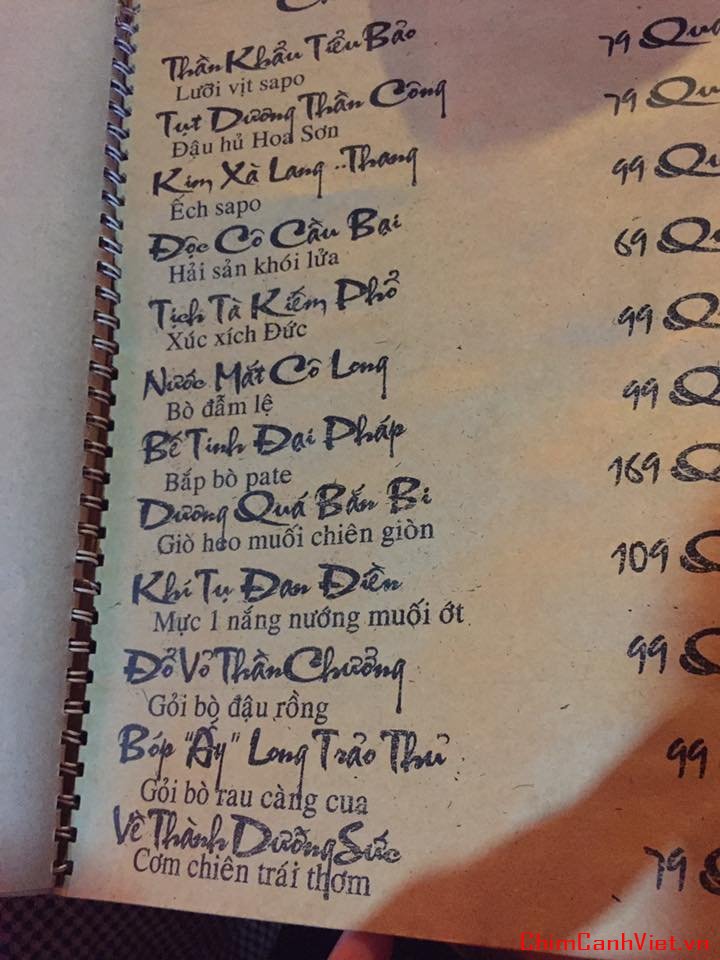 Thần Khẩu Tiểu Bảo 79
Lưỡi vịt sapo
Tụt Dương Thần Công 79
Đậu hủ Hoa Sơn
Kim Xà Lang ..Thang 99
Ếch sapo
Độc Cô Cầu Bại 69
Hải sản khói lửa
Tịch Tà Kiếm Phổ 99
Xúc xích Đức
Nước Mắt Cô Long 99
Bò đẫm lệ
Bế Tinh Đại Pháp 169
Bắp bò pate
Dương Quá Bắn Bi 109
Giò heo muối chiên giòn
Khí Tụ Đan Điền
Mực 1 nắng nướng muối ớt
Đổ Vỏ Thần Chưởng 99
Gỏi bò đậu rồng
Bóp "Ấy" Long Trảo Thủ 99
Gỏi bò rau càng cua
Về Thành Dưỡng Sức 79
Cơm chiên trái thơm
ChimCanhViet.vn